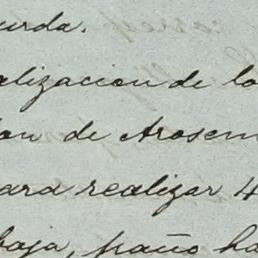 urda.
alizacion de lo
on de Arosem
ara realizar 4
baja, paño ha